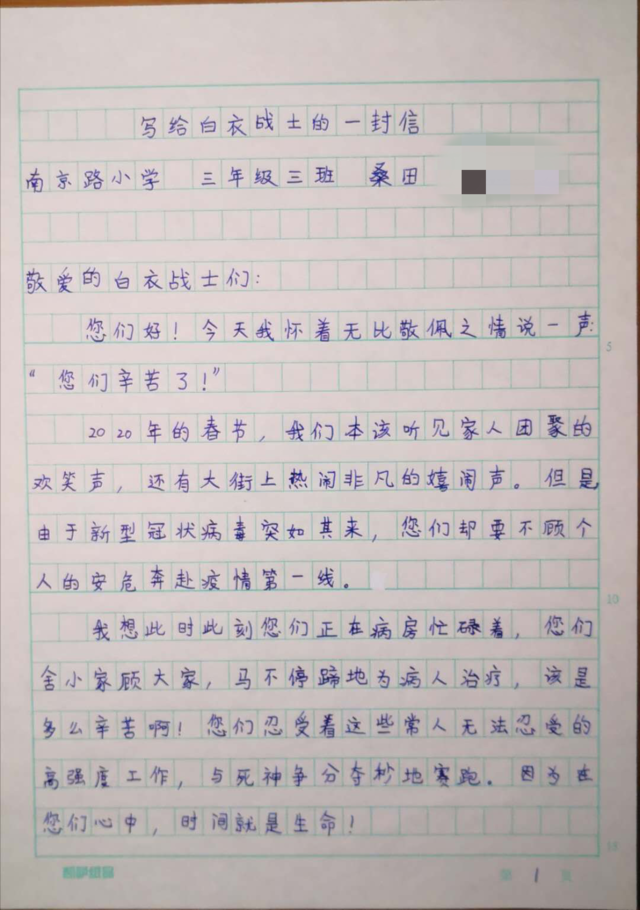 写给白衣战士的一封信
南京路小学 三年级三班 桑田
敬爱的白衣战士们：
您们好！今天我怀着无比敬佩之情说一声：
“您们辛苦了！”
2020年的春节，我们本该听见家人团聚的
欢笑声，还有大街上热闹非凡的嬉闹声。但是，
由于新型冠状病毒突如其来，您们却要不顾个
人的安危奔赴疫情第一线。
我想此时此刻您们正在病房忙碌着，您们
舍小家顾大家，马不停蹄地为病人治疗，该是
多么辛苦啊！您们忍受着这些常人无法忍受的
高强度工作，与死神争分夺秒地赛跑。因为在
您们心中，时间就是生命！
5
10
15
第 1 页